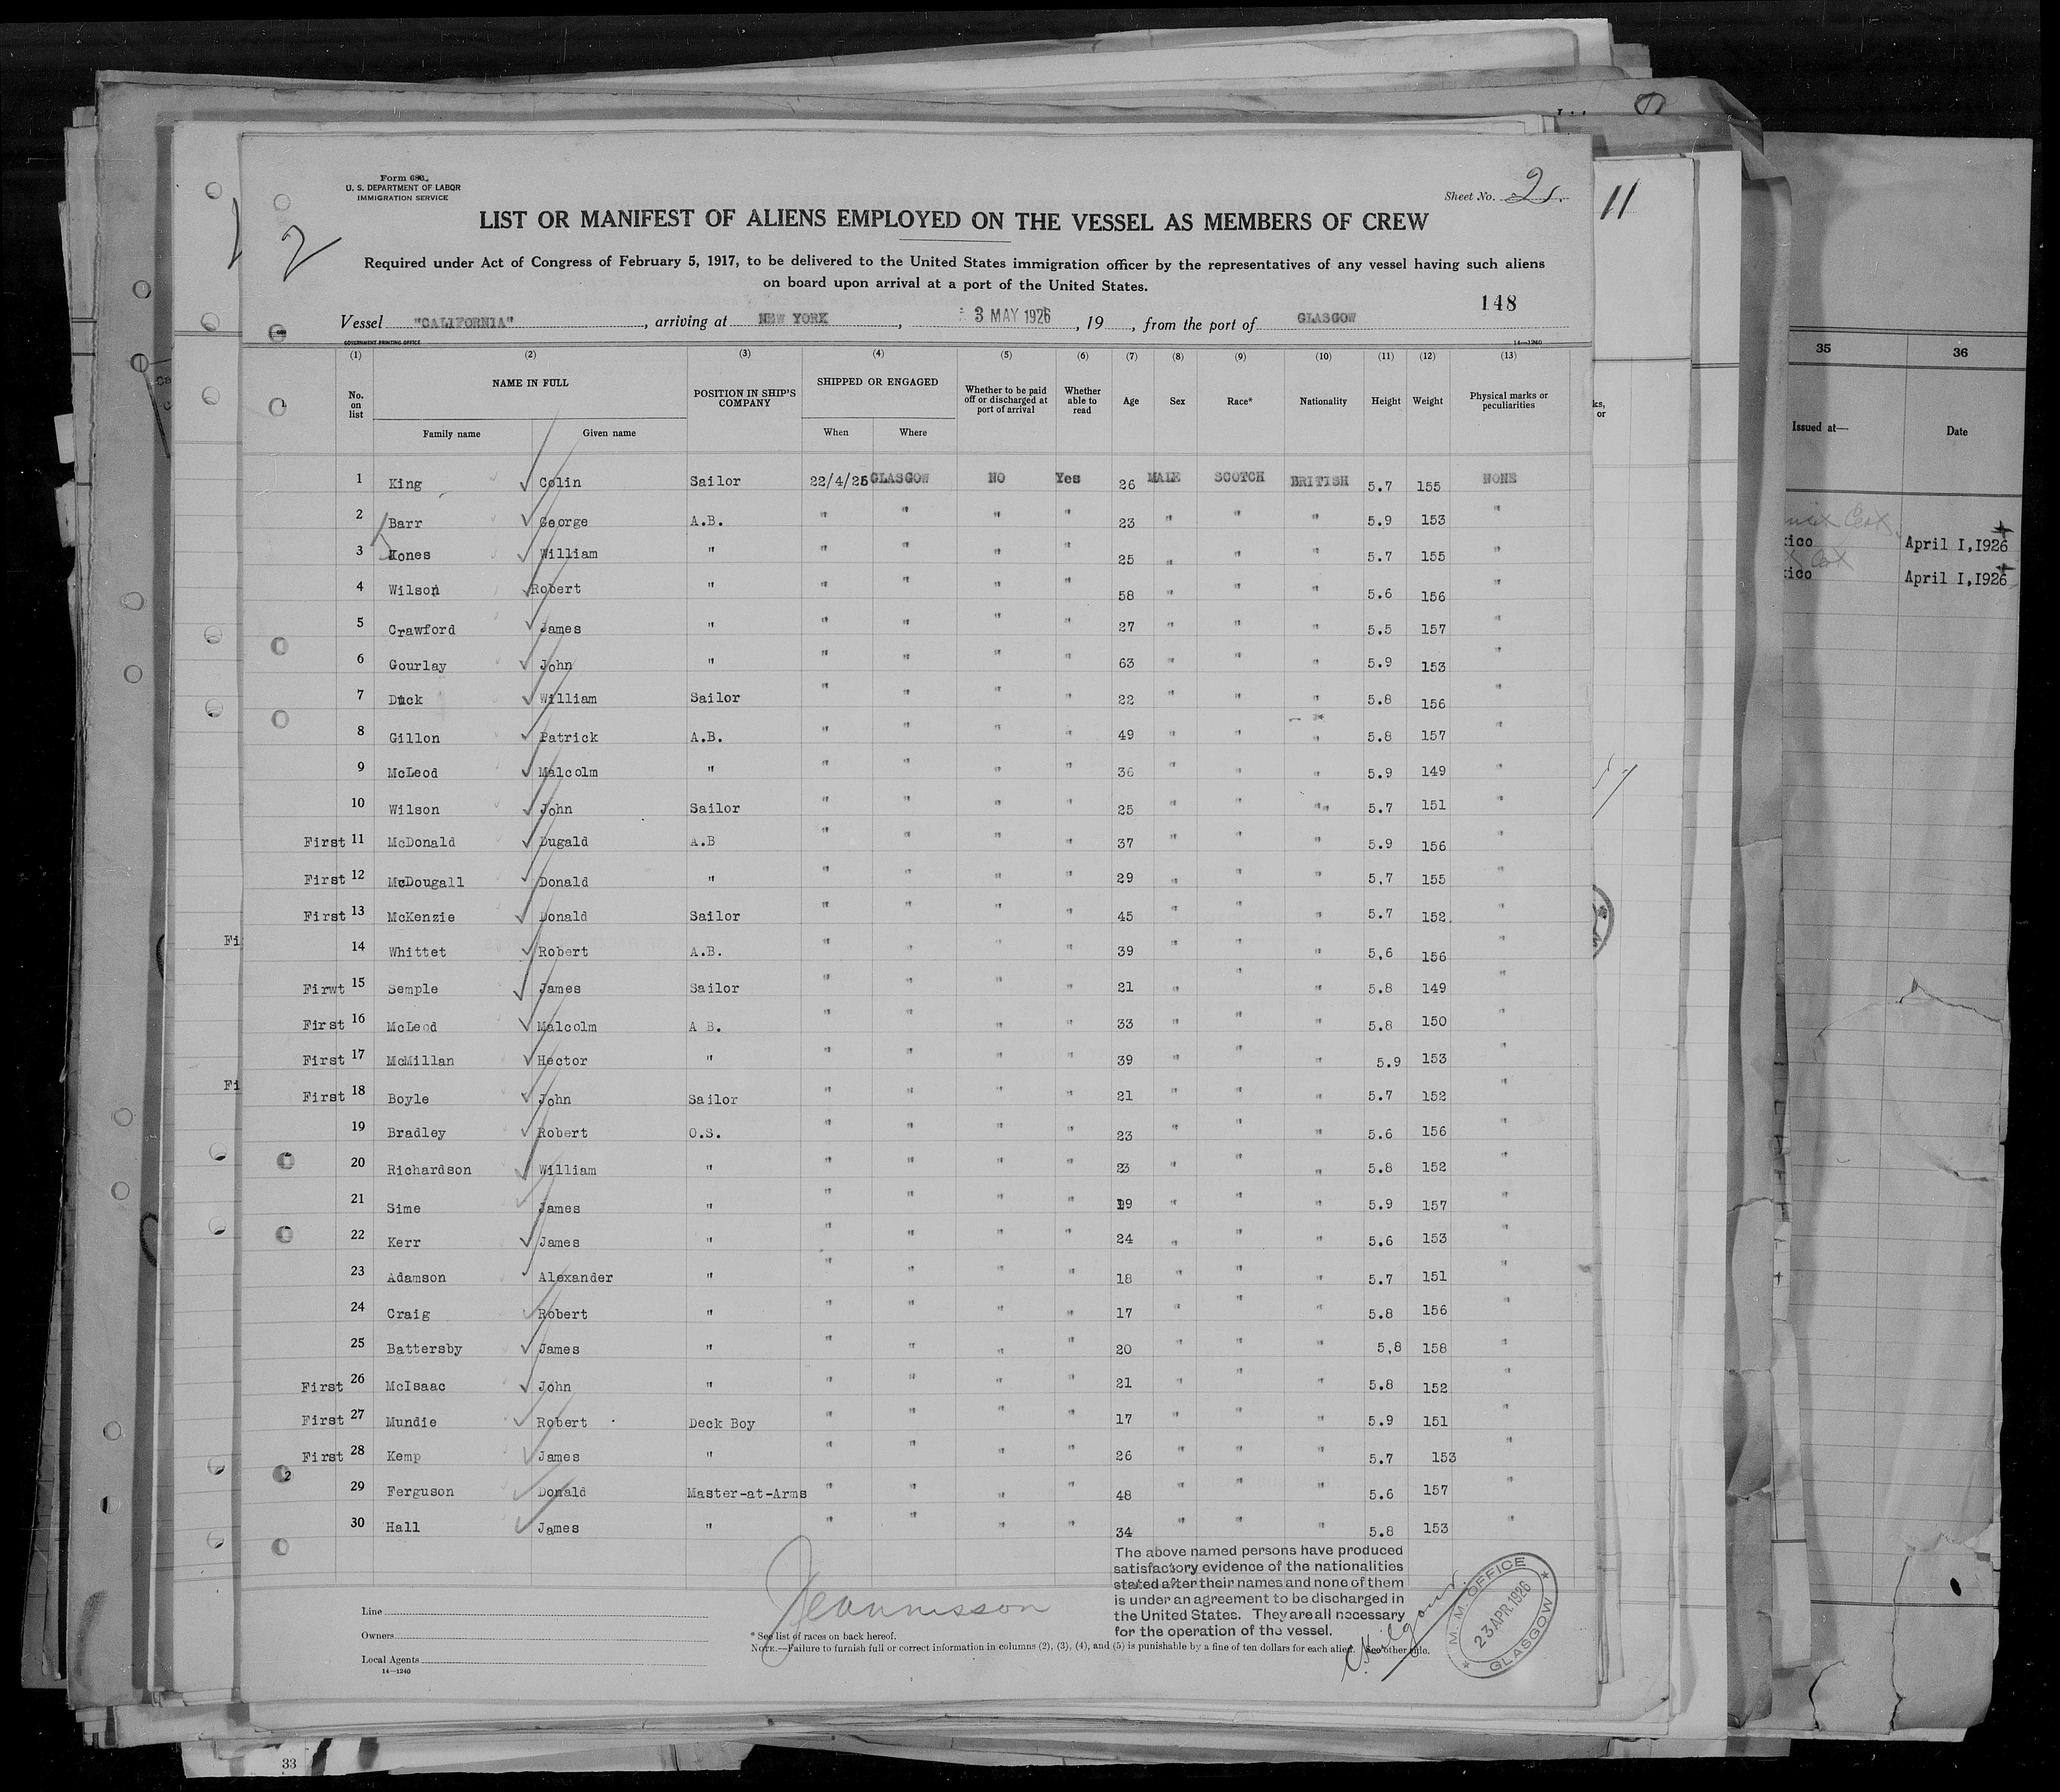 Form 680.
U. S. DEPARTMENT OF LABOR
IMMIGRATION SERVICE
Sheet No. 2
11
2
LIST OR MANIFEST OF ALIENS EMPLOYED ON THE VESSEL AS MEMBERS OF CREW
Required under Act of Congress of February 5, 1917, to be delivered to the United States immigration officer by the representatives of any vessel having such aliens
on board upon arrival at a port of the United States.
148
Vessel "CALIFORNIA", arriving at NEW YORK, 3 MAY 1926, 19, from the port of GLASGOW
GOVERNMENT PRINTING OFFICE 14—1240
(1) (2) (3) (4) (5) (6) (7) (8) (9) (10) (11) (12) (13)
No. on list NAME IN FULL POSITION IN SHIP'S COMPANY SHIPPED OR ENGAGED Whether to be paid off or discharged at port of arrival Whether able to read Age Sex Race* Nationality Height Weight Physical marks or peculiarities
Family name Given name When Where
1 King Colin Sailor 22/4/26 GLASGOW NO Yes 26 MALE SCOTCH BRITISH 5.7 155 NONE
2 Barr George A.B. " " " " 23 " " " 5.9 153 "
3 Hones William " " " " " 25 " " " 5.7 155 "
4 Wilson Robert " " " " " 58 " " " 5.6 156 "
5 Crawford James " " " " " 27 " " " 5.5 157 "
6 Gourlay John " " " " " 63 " " " 5.9 153 "
7 Duck William Sailor " " " " 22 " " " 5.8 156 "
8 Gillon Patrick A.B. " " " " 49 " " " 5.8 157 "
9 McLeod Malcolm " " " " " 36 " " " 5.9 149 "
10 Wilson John Sailor " " " " 25 " " " 5.7 151 "
First 11 McDonald Dugald A.B " " " " 37 " " " 5.9 156 "
First 12 McDougall Donald " " " " " 29 " " " 5,7 155 "
First 13 McKenzie Donald Sailor " " " " 45 " " " 5.7 152. "
14 Whittet Robert A.B. " " " " 39 " " " 5,6 156 "
Firwt 15 Semple James Sailor " " " " 21 " " " 5.8 149 "
First 16 McLeod Malcolm A B. " " " " 33 " " " 5.8 150 "
First 17 McMillan Hector " " " " " 39 " " " 5.9 153 "
First 18 Boyle John Sailor " " " " 21 " " " 5.7 152 "
19 Bradley Robert O.S. " " " " 23 " " " 5.6 156 "
20 Richardson William " " " " " 23 " " " 5.8 152 "
21 Sime James " " " " " 19 " " " 5.9 157 "
22 Kerr James " " " " " 24 " " " 5.6 153 "
23 Adamson Alexander " " " " " 18 " " " 5.7 151 "
24 Craig Robert " " " " " 17 " " " 5.8 156 "
25 Battersby James " " " " " 20 " " " 5,8 158 "
First 26 McIsaac John " " " " " 21 " " " 5.8 152 "
First 27 Mundie Robert Deck Boy " " " " 17 " " " 5.9 151 "
First 28 Kemp James " " " " " 26 " " " 5.7 153 "
29 Ferguson Donald Master-at-Arms " " " " 48 " " " 5.6 157 "
30 Hall James " " " " " 34 " " " 5.8 153 "
The above named persons have produced
satisfactory evidence of the nationalities
stated after their names and none of them
is under an agreement to be discharged in
the United States. They are all necessary
for the operation of the vessel.
Line
Owners
Local Agents
14—1240
* See list of races on back hereof.
NOTE.—Failure to furnish full or correct information in columns (2), (3), (4), and (5) is punishable by a fine of ten dollars for each alien. See other side.
M. M. OFFICE
23 APR 1926
GLASGOW
35 36
Issued at— Date
April I,1926
April I,1926
Fi
Fi
33